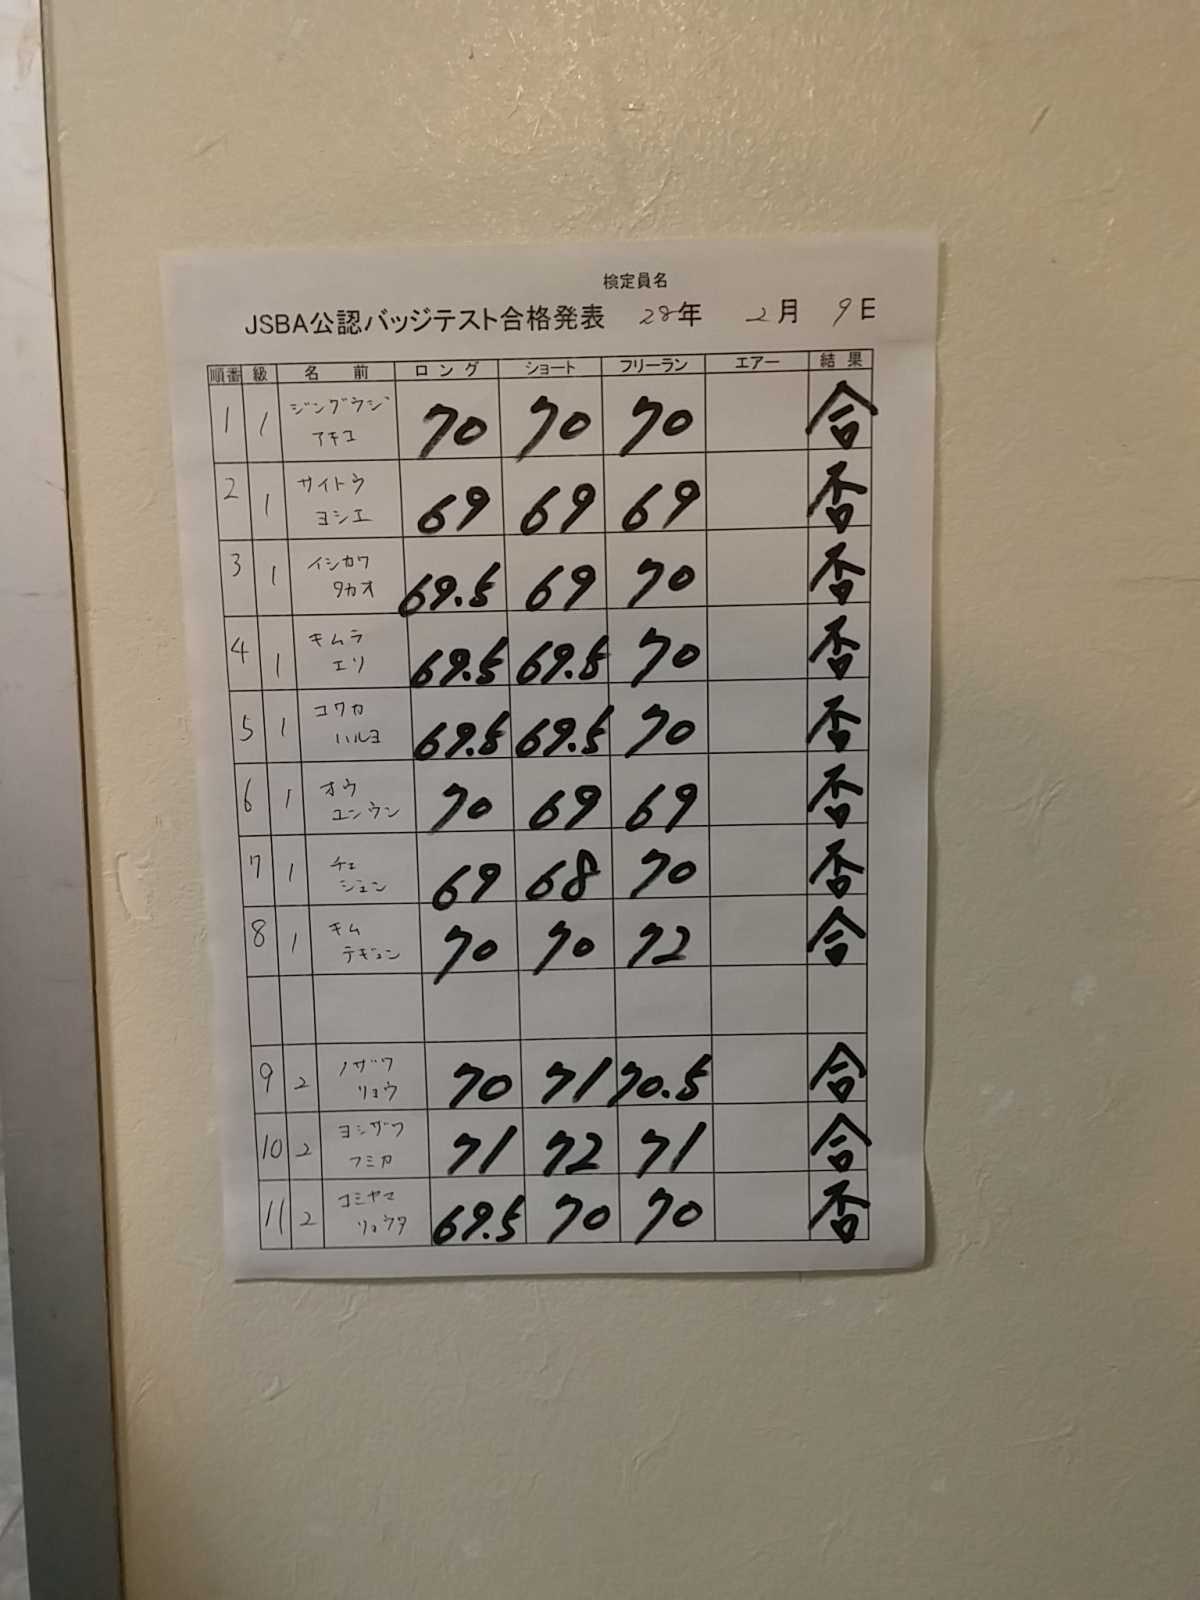 検定員名
JSBA公認バッジテスト合格発表 28年 2月 9日
順番 級 名前 ロング ショート フリーラン エアー 結果
1 1 ジングウジ アキコ 70 70 70 合
2 1 サイトウ ヨシエ 69 69 69 否
3 1 イシカワ タカオ 69.5 69 70 否
4 1 キムラ エリ 69.5 69.5 70 否
5 1 コワカ ハルヨ 69.5 69.5 70 否
6 1 オウ ユンウン 70 69 69 否
7 1 チェ ジュン 69 68 70 否
8 1 キム テギュン 70 70 72 合
9 2 ノザワ リョウ 70 71 70.5 合
10 2 ヨシザワ フミカ 71 72 71 合
11 2 コミヤマ リョウタ 69.5 70 70 否